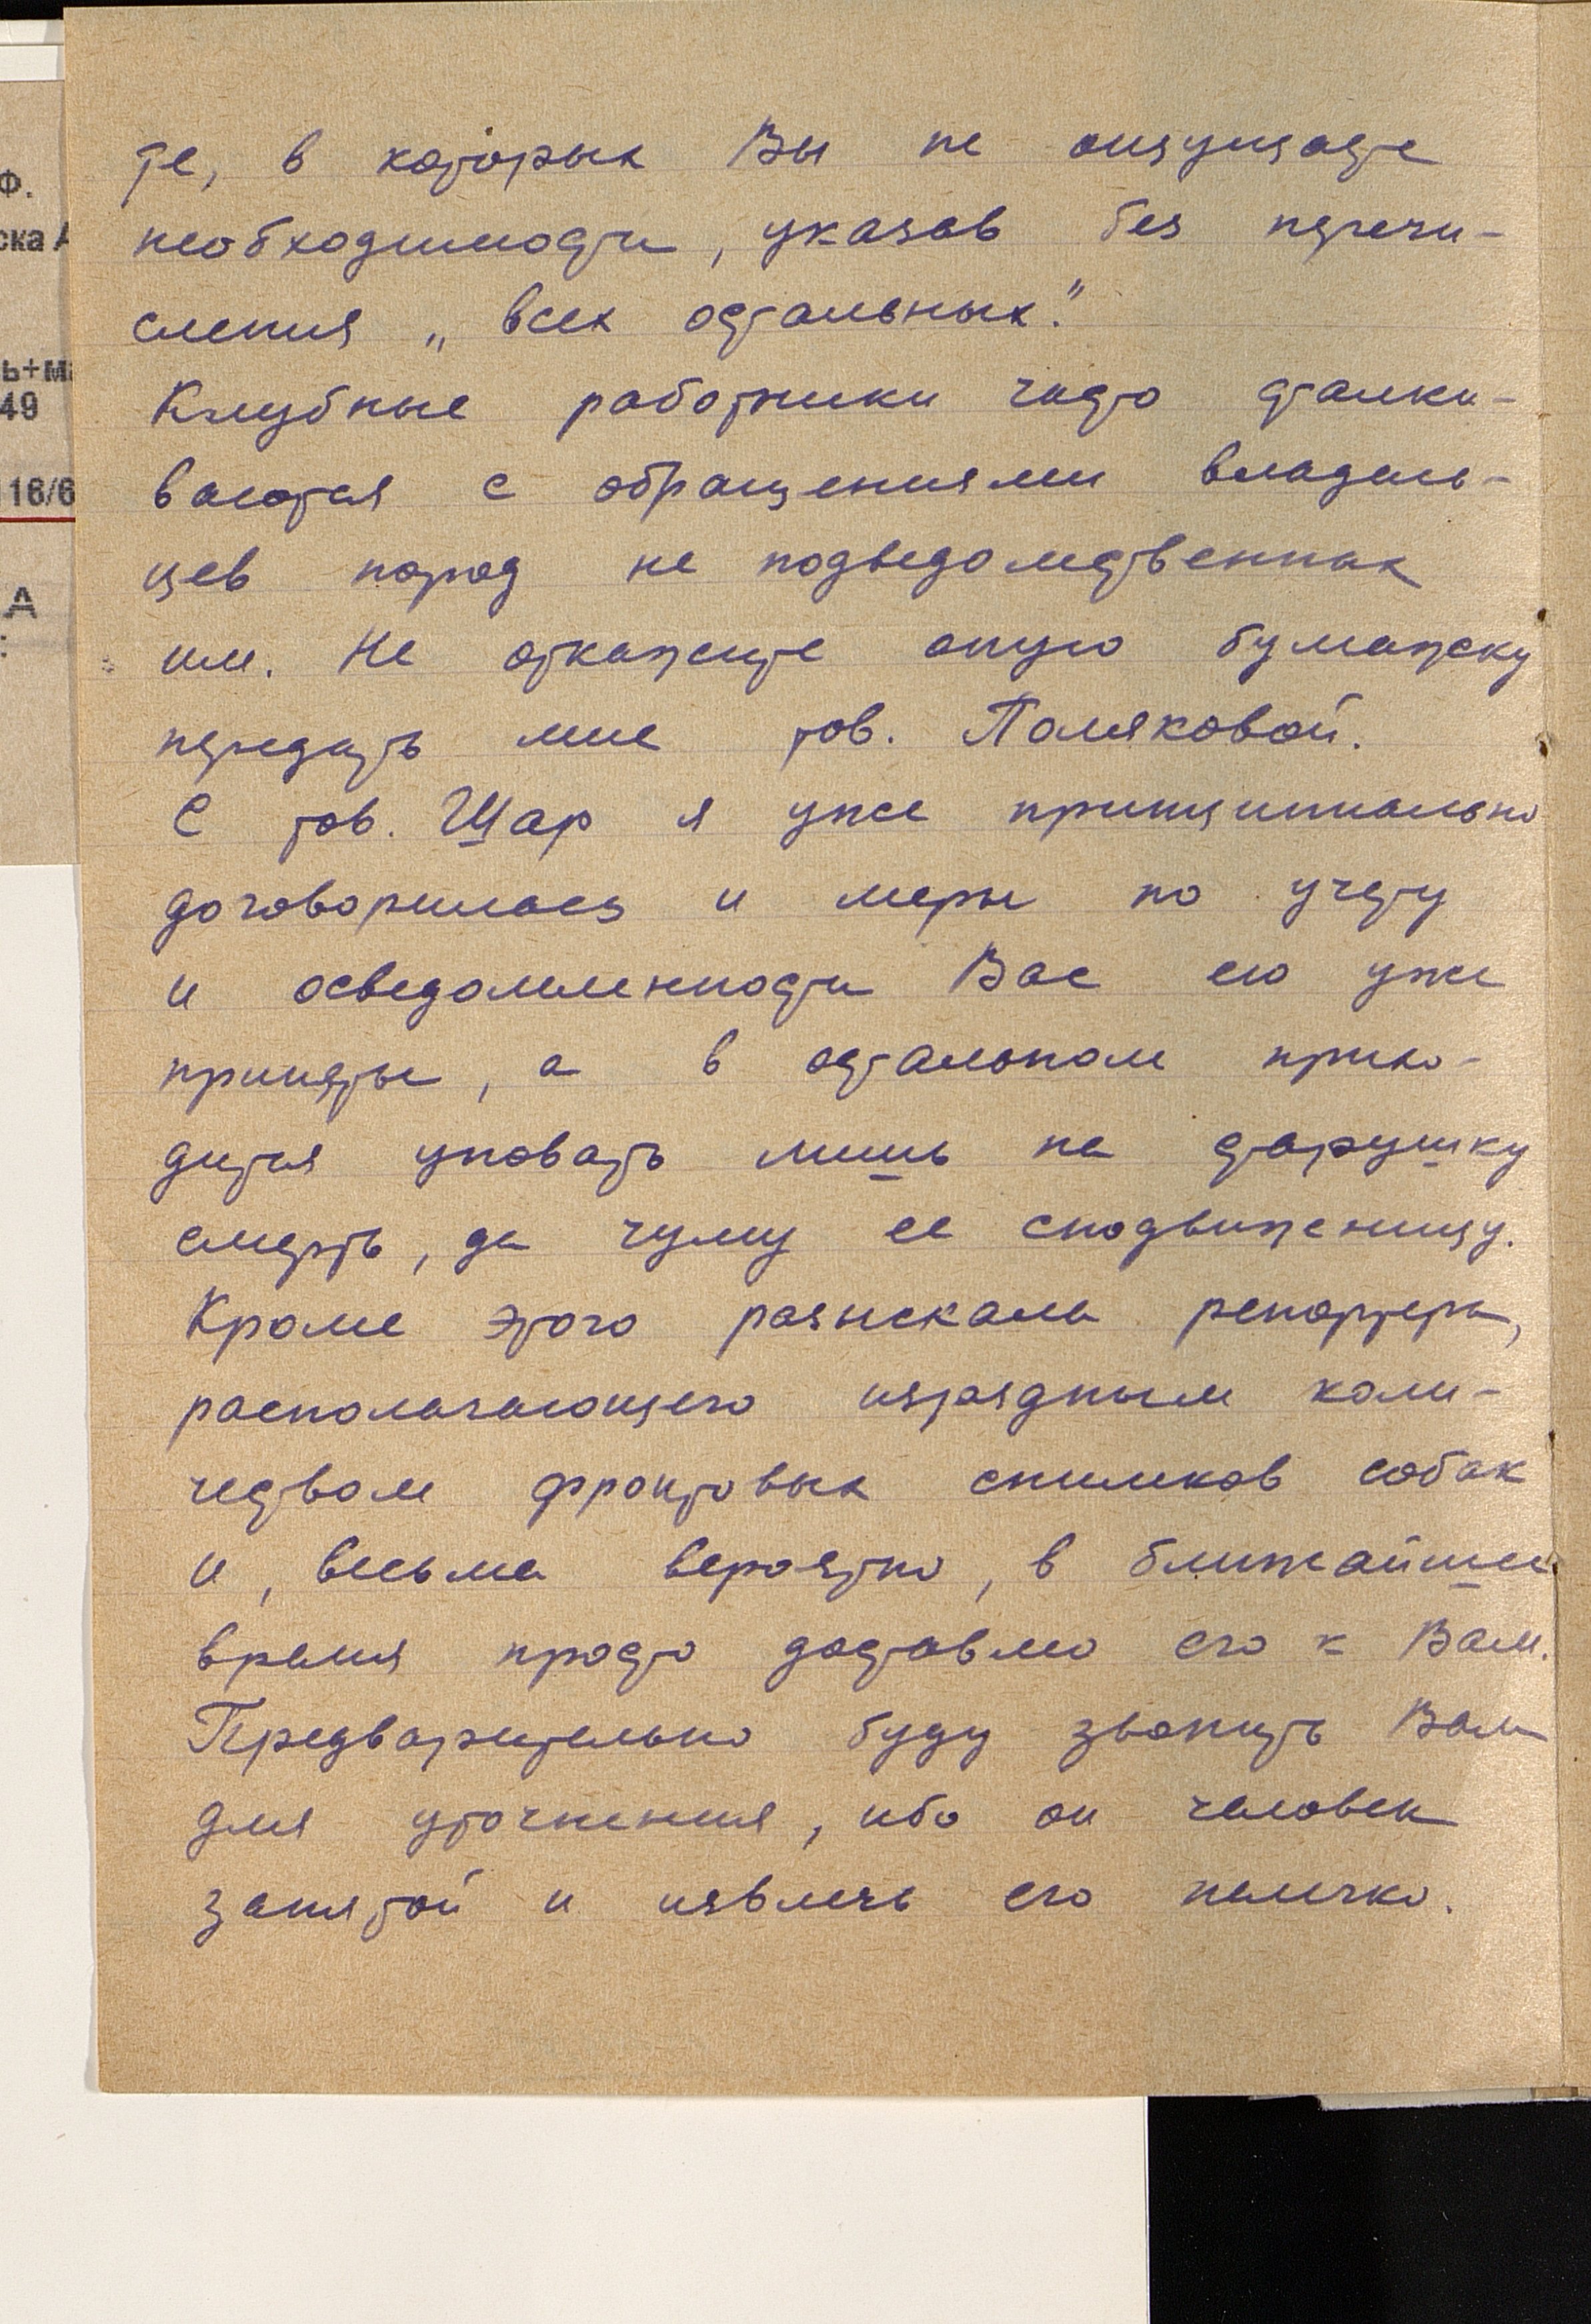 Ф.
ска А
ь+ма
49
116/6
А
те, в которых Вы не ощущаете
необходимости, указав без перечи-
сления „всех остальных".
Клубные работники часто сталки-
ваются с обращениями владель-
цев пород не подведомственных
им. Не откажите оную бумажку
передать мне тов. Поляковой.
С тов. Шар я уже принципиально
договорилась и меры по учету
и осведомленности Вас ею уже
приняты, а в остальном прихо-
дится уповать лишь на старушку
смерть, да чуму ее сподвижницу.
Кроме этого разыскала репортера,
располагающего изрядным коли-
чеством фронтовых снимков собак
и, весьма вероятно, в ближайшее
время просто доставлю его к Вам.
Предварительно буду звонить Вам
для уточнения, ибо он человек
занятой и извлечь его нелегко.